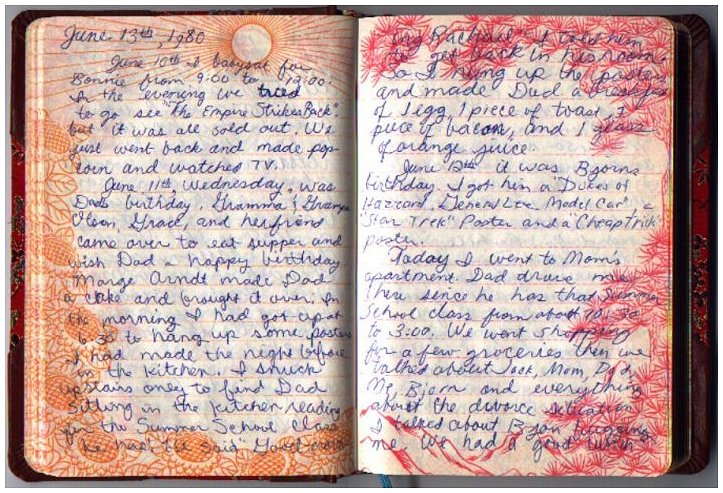 June 13th, 1980
June 10th I babysat for
Bonnie from 9:00 to 12:00.
In the evening we tried
to go see "The Empire Strikes Back".
but it was all sold out. We
just went back and made pop-
corn and watches TV.
June 11th, Wednesday, was
Dads birthday. Gramma & Grampa
Olson, Grace, and her friend
came over to eat supper and
wish Dad a happy birthday
Marge Arndt made Dad
a cake and brought it over. In
the morning I had got up at
6:30 to hang up some posters
I had made the night before
in the kitchen. I snuck
upstairs only to find Dad
sitting in the kitchen reading
for the Summer School class
he has. He said "Good morn-
ing Rachael" I told him
to get back in his room.
So I hung up the posters
and made Dad a breakfast
of 1 egg, 1 piece of toast, 1
piece of bacon, and 1 glass
of orange juice.
June 12th it was Bjorns
birthday. I got him a "Dukes of
Hazzard General Lee Model Car", a
"Star Trek" Poster and a "Cheap Trick"
poster.
Today I went to Mom's
apartment. Dad drove me
there since he has that Summer
School class from about 10:30
to 3:00. We went shopping
for a few groceries then we
talked about Jock, Mom, Dad,
Me, Bjorn and everything
about the divorce situation
I talked about Bjorn bugging
me. We had a good lunch